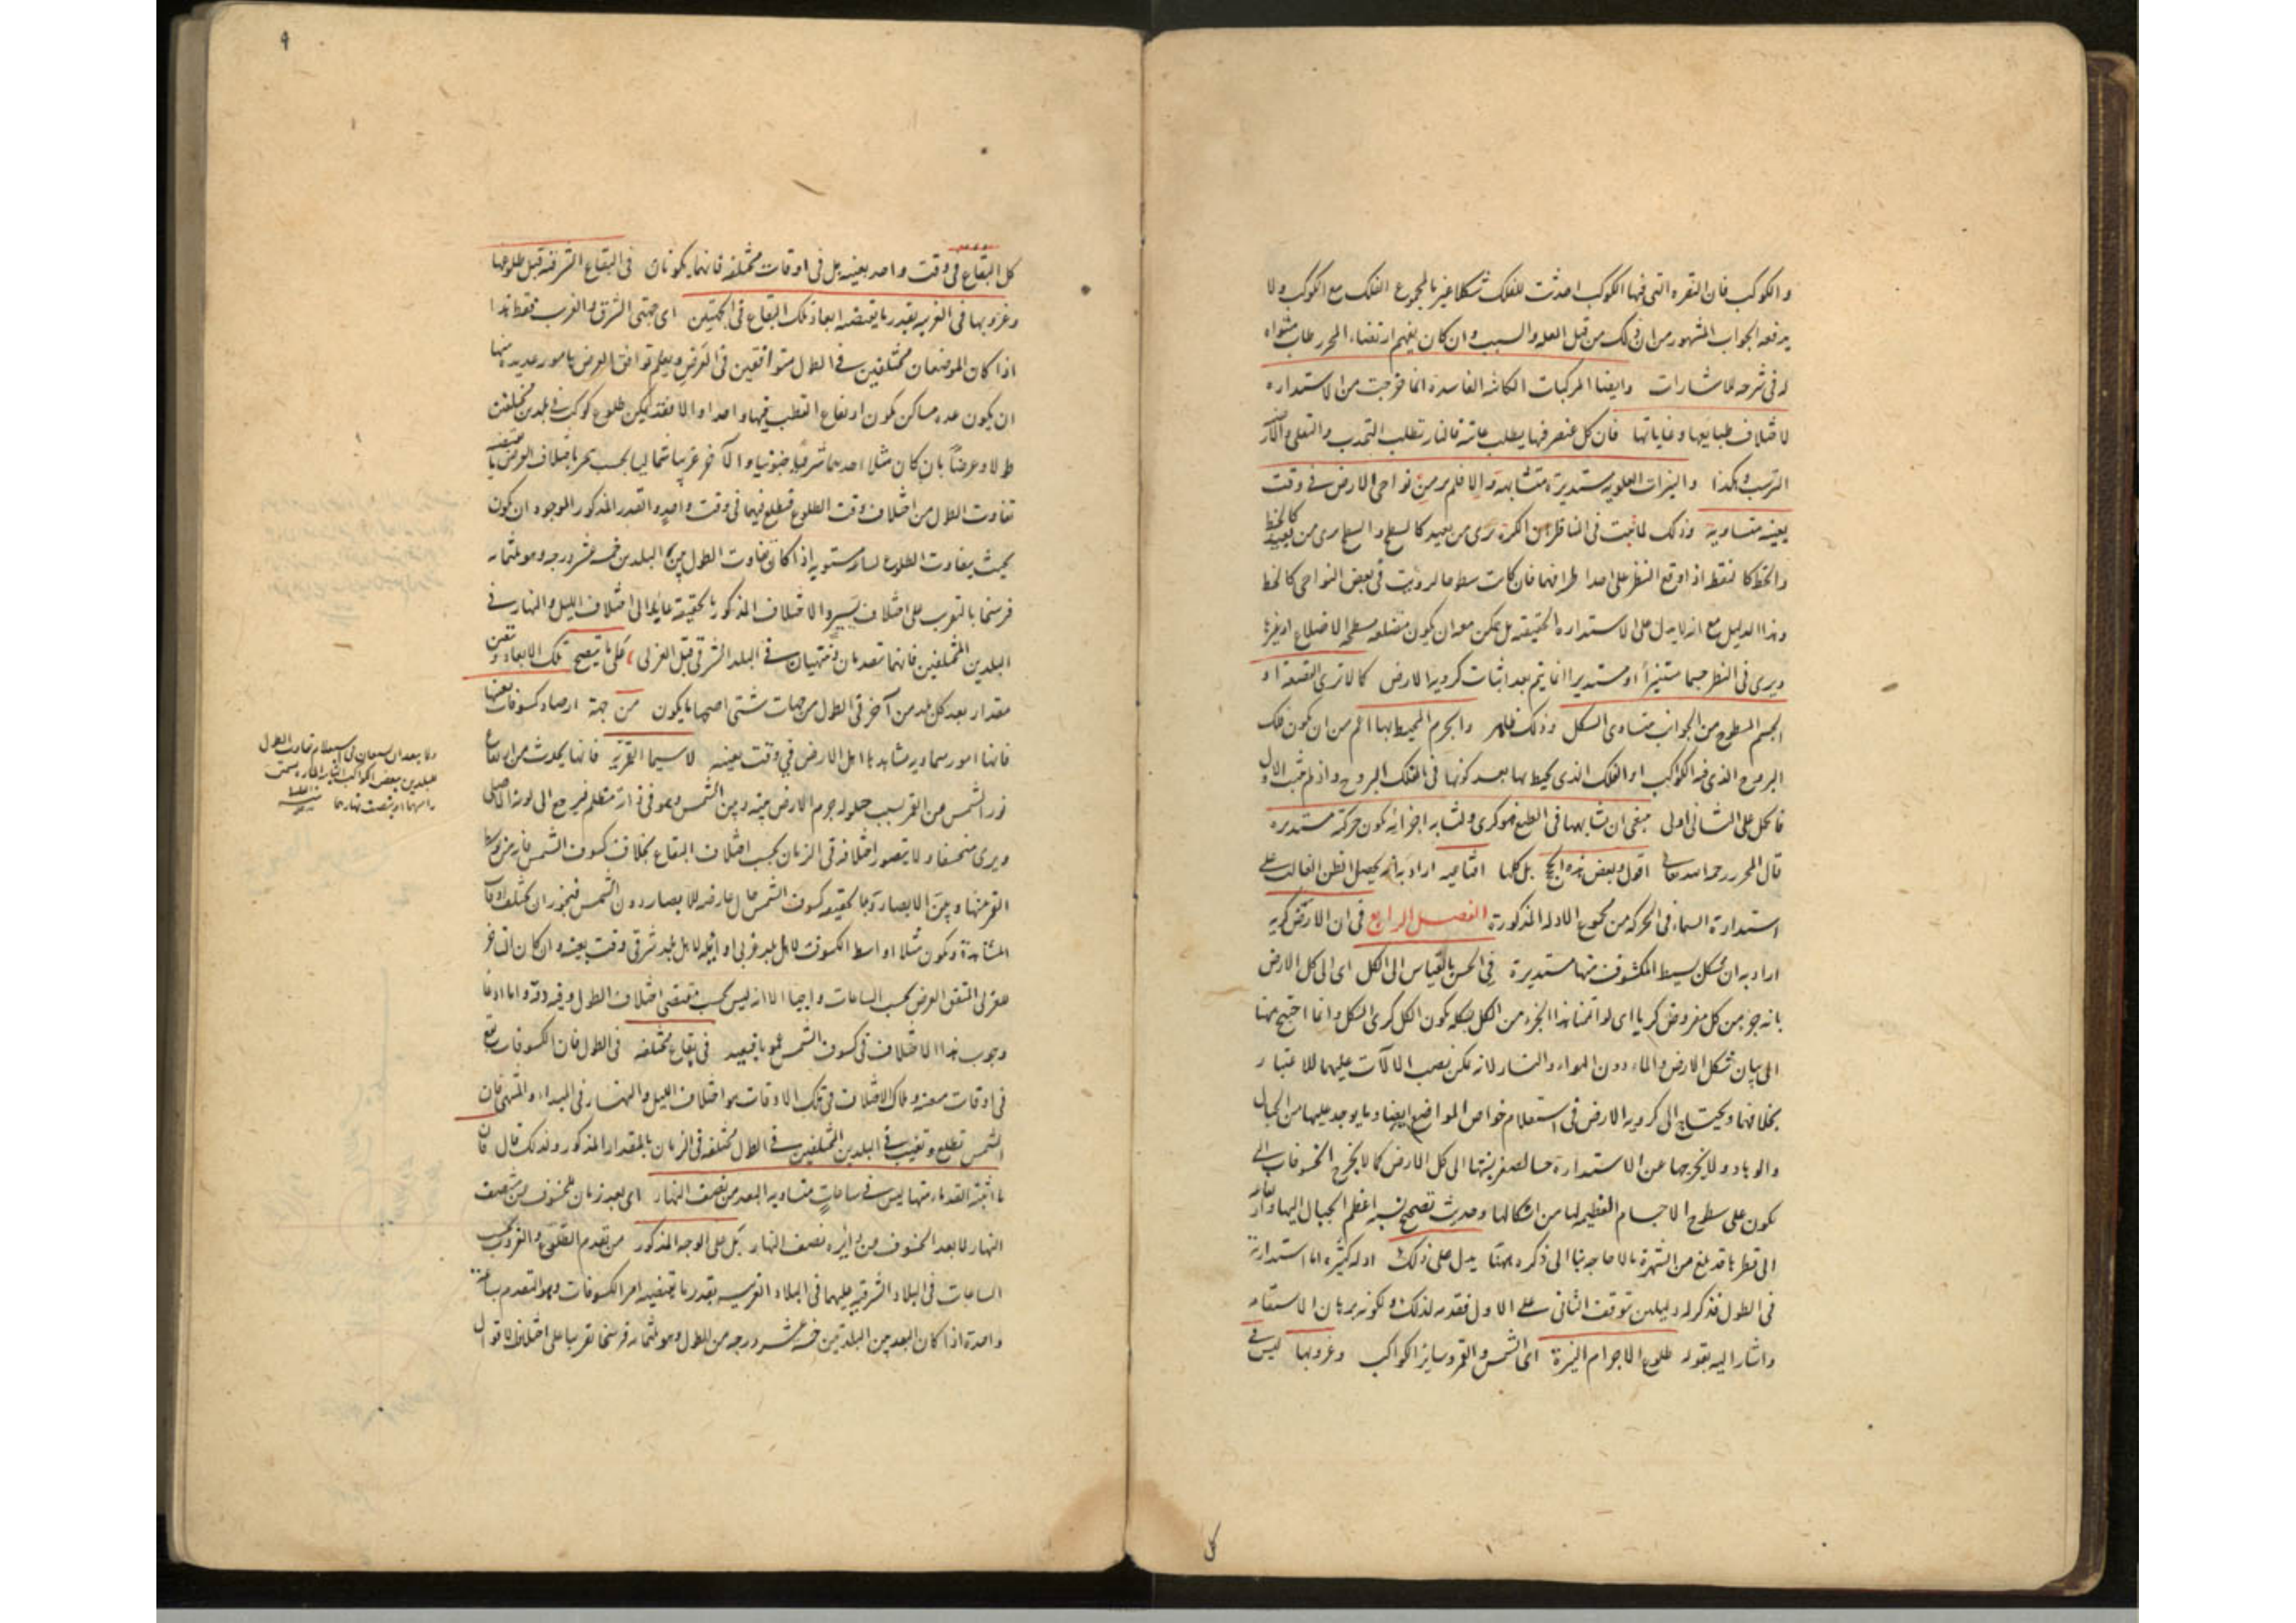 والكوكب فان النقره التى فيها الكوكب احدثت للفلك شكلا غير المجموع الفلك مع الكوكب ولا
يدفعه الجواب المشهور من ان ذلك من قبل العله والسبب وان كان يفهم ارتضاء المحرر طاب مثواه
له فى شرحه للاشارات وايضا المركبات الكائنه الفاسدة انما خرجت من الاستداره
لاختلاف طبايعها وغاياتها فان كل عنصر فيها يطلب غايته فالنار تطلب التحدب والتعلى والارض
الترسب وهكذا والنيرات العلويه مستديرة متشابهة والا فلم ير من نواحى الارض فى وقت
بعينه متساوية وذلك لما ثبت فى المناظر من ان الكرة ترى من بعيد كالسطح والسطح يرى من بعيد كالخط
والخط كالنقطه اذا وقع النظر على احد اطرافها فان كانت سطوحا لرؤيت فى بعض النواحى كالخط
وهذا الدليل مع انه لا يدل على الاستداره الحقيقية بل يمكن معه ان يكون مضلعه سطحه الاضلاع او غيرها
ويرى فى النظر جسما مستنيرا او مستديرا انما يتم بعد اثبات كرويه الارض كما لا ترى القصعة او
الجسم المسطوح من الجوانب متساوى الشكل وذلك ظاهر والجرم المحيط بها اعم من ان يكون فلك
البروج الذى فيه الكواكب او الفلك الذى يحيط بها بعد كونها فى الفلك البروج واذ لم يثبت الاول
فالحمل على الثانى اولى ينبغى ان تشابهها فى الطبع فهو كرى ولتشابه اجزائه تكون حركته مستديره
قال المحرر رحمه الله تعالى اقول وبعض هذه الحجج بل كلها اقناعيه اراد به انه يحصل الظن الغالب على
استدارة السماء فى الحركه من مجموع الادله المذكورة الفصل الرابع فى ان الارض كريه
اراد به ان شكل بسيط المكشوف منها مستديرة فى الحس بالقياس الى الكل اى الى كل الارض
بانه جزء من كل مفروض كريا اى لو اتممنا هذا الجزء من الكل بشكله يكون الكل كرى الشكل وانما احتيج هنا
الى بيان شكل الارض والماء دون الهواء والنار لانه يمكن نصب الالات عليهما للاعتبار
بخلافهما ويحتاج الى كرويه الارض فى استعلام خواص المواضع ايضا وما يوجد عليها من الجبال
والوهاد ولا يخرجها عن الاستدارة حسا لصغر نسبتها الى كل الارض كما لا يخرج الخسوفات التى
تكون على سطوح الاجسام العظيمه لها من اشكالها وحديث تصحيح نسبه اعظم الجبال اليها
الى قطرها قد بلغ من الشهرة ما لا حاجه بنا الى ذكره ههنا يدل على ذلك ادله كثيره اما استدارته
فى الطول فذكر له دليلين توقف الثانى على الاول فقدمه لذلك ولكونه برهان الاستقامه
واشار اليه بقوله طلوع الاجرام النيرة اى الشمس والقمر وسائر الكواكب وغروبها ليس فى
كل
٩
كل البقاع فى وقت واحد بعينه بل فى اوقات مختلفه فانهما يكونان فى البقاع الشرقيه قبل طلوعها
وغروبها فى الغربيه بقدر ما يقتضيه ابعاد تلك البقاع فى الجهتين اى جهتى الشرق والغرب فقط هذا
اذا كان الموضعان مختلفين فى الطول متوافقين فى العرض ويعلم توافق العرض بامور عديده منها
ان يكون عده مساكن يكون ارتفاع القطب فيها واحدا والا فقد يمكن طلوع كوكب فى بلدين مختلفين
طولا وعرضا بان كان مثلا احدهما شرقيا جنوبيا والآخر غربيا شماليا
تفاوت الطول من اختلاف وقت الطلوع فيطلع فيهما فى وقت واحد والقدر المذكور الموجود ان يكون
بحيث يتفاوت الطلوع ساعه مستويه اذا كان تفاوت الطول بين البلدين خمسه عشر درجه وهو ثلثمائه
فرسخا بالتقريب على اختلاف يسير والاختلاف المذكور بالحقيقه عايد الى اختلاف الليل والنهار فى
البلدين المختلفين فانهما تبتديان وتنتهيان فى البلد الشرقى قبل الغربى على ما يتضح تلك الابعاد وتعين
مقدار بعد كل بلد من آخر فى الطول من جهات شتى اصحها ما يكون من جهة ارصاد كسوفات بعينها
فانها امور سماويه مشاهدها اهل الارض فى وقت بعينه لا سيما القمرية فانها يحدث من ارتفاع
نور الشمس من القمر بسبب حلوله جرم الارض بينه وبين الشمس وهو فى ذاته مظلم فيرجع الى لونه الاصلى
ويرى منخسفا ولا يتصور اختلافه فى الزمان بحسب اختلاف البقاع بخلاف كسوف الشمس فانه من توسط
القمر بينها وبين الابصار وبالحقيقه كسوف الشمس حال عارضه للابصار دون الشمس فيجوز ان يختلف اوقات
المشاهدة ويكون مثلا اواسط الكسوف لاهل بلد غربى اوائله لاهل بلد شرقى وقت بعينه وان كان
عن المتفق العرض بحسب الساعات واجبا الا انه ليس بحسب مقتضى اختلاف الطول وفيه دقه واما ادعا
وجوب هذا الاختلاف فى كسوف الشمس فهو بعيد فى بقاع مختلفه فى الطول فان الكسوفات تقع
فى اوقات معينه وملاك الاختلاف فى تلك الاوقات هو اختلاف الليل والنهار فى المبداء والمنتهى فان
الشمس تطلع وتغيب فى البلدين المختلفين فى الطول مختلفه فى الزمان بالمقدار المذكور ولذلك قال فان
ما اثبته القدماء منها ليس فى ساعات متساويه البعد من نصف النهار اى بعد زمان للخسوف من نصف
النهار لا بعد الخسوف من دايره نصف النهار بل على الوجه المذكور من تقدم الطلوع والغروب بحسب
الساعات فى البلاد الشرقيه عليهما فى البلاد الغربيه بقدر ما يقتضيه امر الكسوفات وهو التقدم بساعة
واحدة اذا كان البعد بين البلدتين خمسه عشر درجه من الطول وهو ثلثمائه فرسخا تقريبا على اختلاف